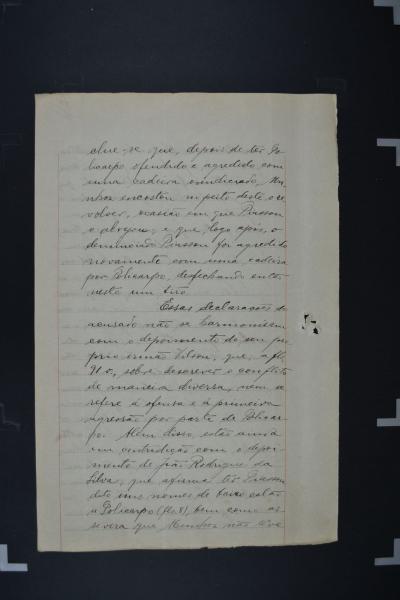 clue-se que, depois de ter Po-
licarpo ofendido e agredido com
uma cadeira o indiciado, Mu-
nhoz encostou no peito deste o re-
volver, ocasião em que Piasson
o abraçou, e que, logo após, o
denunciado Piasson foi agredido
novamente com uma cadeira
por Policarpo, desfechando então
neste um tiro.
Essas declarações do
acusado não se harmonisam
com o depoimento do seu pro-
prio irmão Vilson, que, a fls.
sobre descrever o conflito
de maneira diversa, nem se
refere á ofensa e á primeira
agressão por parte de Policar-
po. Alem disso, estão ainda
em contradição com o depoi-
mento de João Rodrigues da
Silva, que afirma ter Piasson
dito uns nomes de baixo calão
a Policarpo (fls. 8), bem como as-
severa que Munhoz não teve